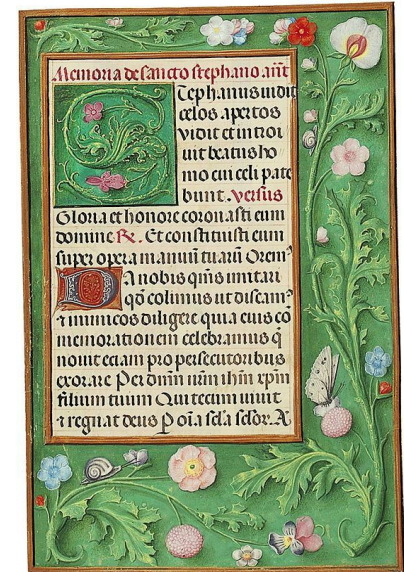 Memoria de sancto stephano añt
Stephanus uidit
celos apertos
vidit et introi
uit beatus ho
mo cui celi pate
bunt. versus
Gloria et honore coronasti eum
domine R. Et constituisti eum
super opera manuum tuarū Orem⁹
Da nobis qm̄s imitari
qd̄ colimus ut discam⁹
⁊ inimicos diligere quia eius cō
memorationem celebramus q̄
nouit etiam pro persecutoribus
exorare Per dnm̄ nr̄m ihm̄ xpm̄
filium tuum Qui tecum uiuit
⁊ regnat deus P oīa scl̄a sclōr. A